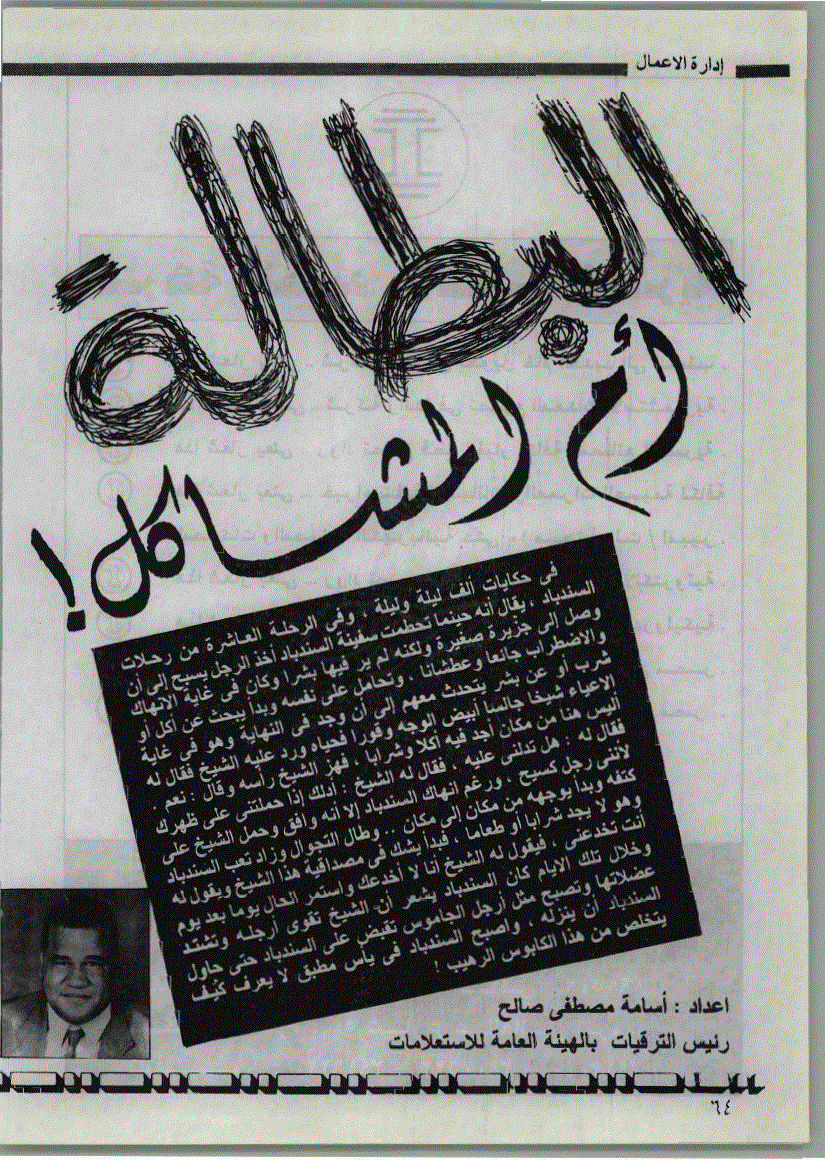 إدارة الاعمال
البطالة
أم المشاكل !
فى حكايات ألف ليلة وليلة ، وفى الرحلة العاشرة من رحلات
السندباد ، يقال أنه حينما تحطمت سفينة السندباد أخذ الرجل يسبح إلى أن
وصل إلى جزيرة صغيرة ولكنه لم ير فيها بشرا وكان فى غاية الانهاك
والاضطراب جائعا وعطشانا ، وتحامل على نفسه وبدأ يبحث عن أكل أو
شرب أو عن بشر يتحدث معهم إلى أن وجد فى النهاية وهو فى غاية
الاعياء شيخا جالسا أبيض الوجه وقورا فحياه ورد عليه الشيخ فقال له
أليس هنا من مكان أجد فيه أكلا وشرابا ، فهز الشيخ رأسه وقال : نعم .
فقال له : هل تدلنى عليه ، فقال له الشيخ : أدلك إذا حملتنى على ظهرك
لأننى رجل كسيح ، ورغم انهاك السندباد إلا أنه وافق وحمل الشيخ على
كتفه وبدأ يوجهه من مكان إلى مكان .. وطال التجوال وزاد تعب السندباد
وهو لا يجد شرابا أو طعاما ، فبدأ يشك فى مصداقية هذا الشيخ ويقول له
أنت تخدعنى ، فيقول له الشيخ أنا لا أخدعك واستمر الحال يوما بعد يوم
وخلال تلك الايام كان السندباد يشعر أن الشيخ تقوى أرجله وتشتد
عضلاتها وتصبح مثل أرجل الجاموس تقبض على السندباد حتى حاول
السندباد أن ينزله ، وأصبح السندباد فى يأس مطبق لا يعرف كيف
يتخلص من هذا الكابوس الرهيب !
اعداد : أسامة مصطفى صالح
رئيس الترقيات بالهيئة العامة للاستعلامات
٦٤